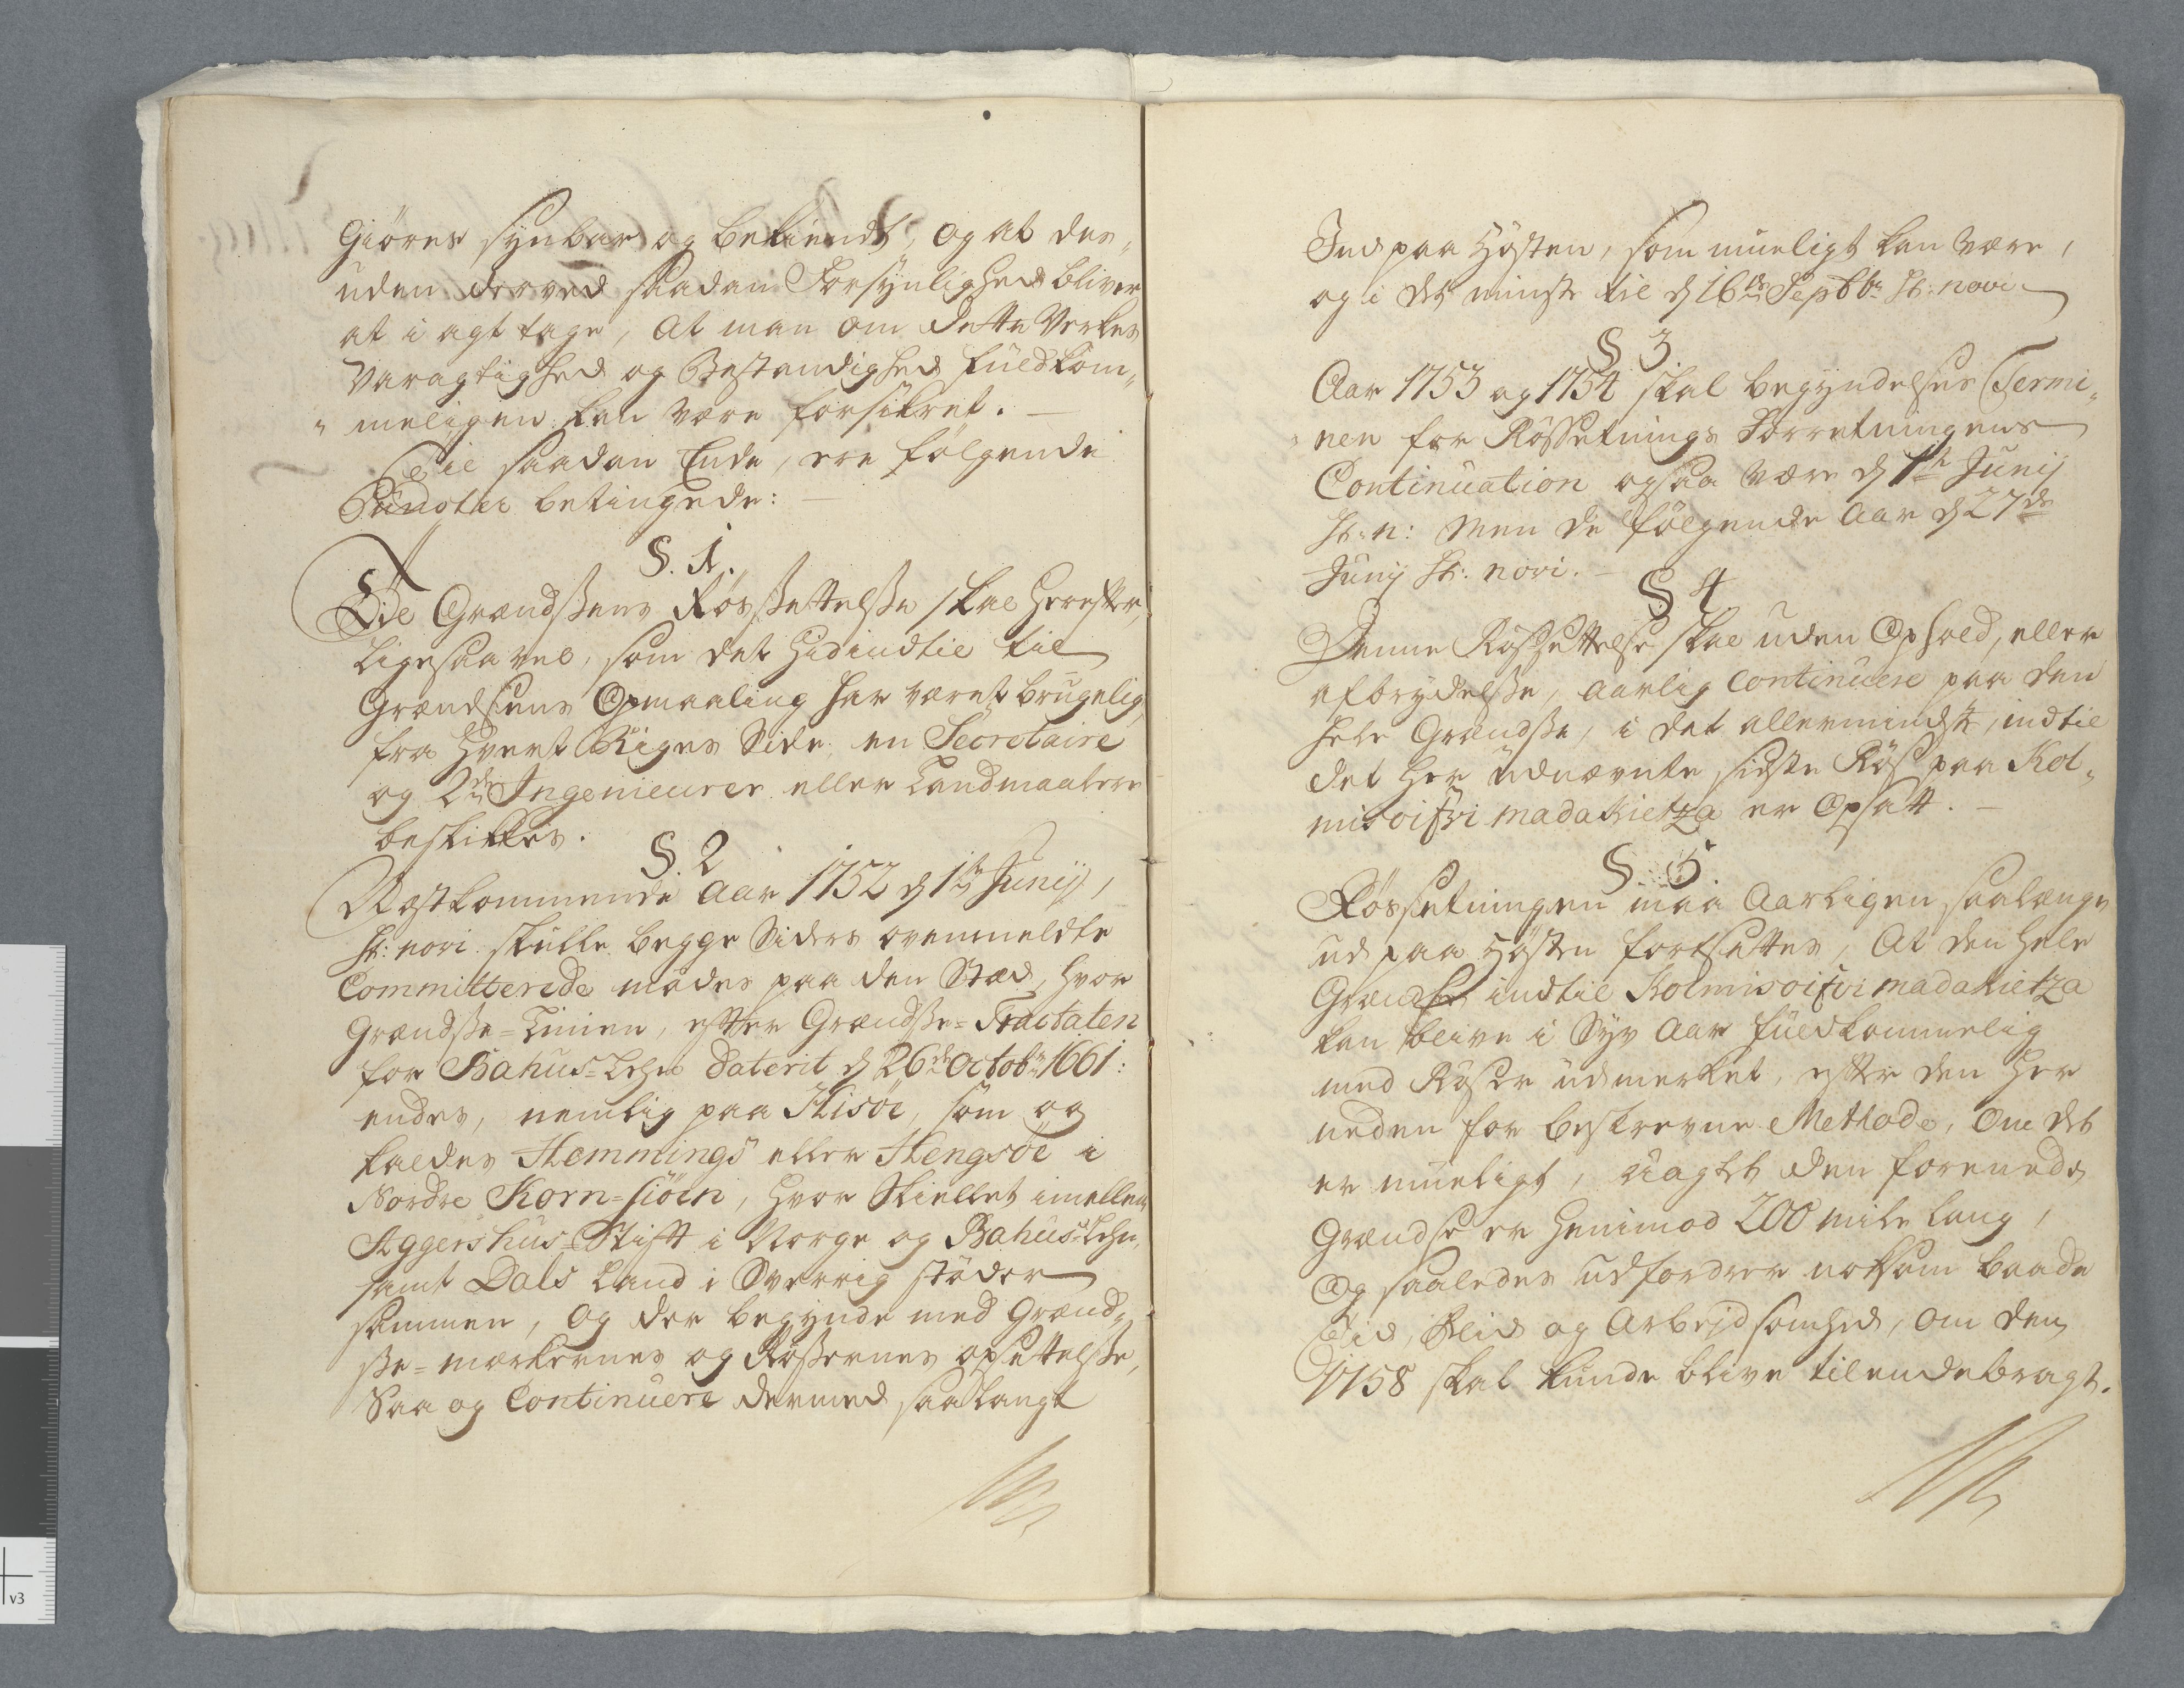 Giöres synbar og bekiendt, og at des,,
uden derved saadan Forsynlighed bliver
at i agt tage, At man om dette Verkes
Varagtighed og Bestandighed fuldkom,,
" meligen kan være forsikret. —
Til saadan Ende, ere følgende
Puncter betingede: —
§. 1.
Til Grændssens Røssettelsse skal herefter,
ligesaavel, som det hidindtil til
Grændsens Opmaaling har været brugelig,
fra hvert Riges Side, en Secretaire
og 2de Ingenieurer eller Landmaalere
beskikkes.
§. 2
Næstkommende Aar 1752 d 1ste Junij,
St: novi skulle begge Siders ovenmeldte
Committerede mødes paa den Stæd, hvor
Grændsse=Linien, efter Grændsse=Tractaten
for Bahus=Lehn daterit d 26de Octobr 1661:
endes, nemlig paa Hisöe, som og
kaldes Hemmings eller Hengsöe i
Nordre Korn=siöen, hvor Skiellet imellem
Aggershus=Stift i Norge og Bahus=Lehn,
samt Dals Land i Sverrig støder
sammen, og der begynde med Grænd,,
sse=mærkernes og Røssernes opsettelsse,
Saa og Continuere dermed saa langt
Ind paa Høsten, som mueligt kan være,
og i det minste til d 16de Septbr St: novi
§ 3.
Aar 1753 og 1754 skal begyndelses Termi,,
nen for Røssetnings Forretningens
Continuation ogsaa være d 1ste Junij
St: n: Men de følgende Aar d 27de
Junij St: novi. —
§ 4
Denne Røssettelse skal uden Ophold, eller
afbrydelsse, Aarlig Continuere paa den
hele Grændsse, i det allermindste, indtil
det her udnævnte sidste Røs paa Kol,,
misoifvi madakietza er Opsatt. —
§. 5.
Røssetningen maa Aarligen saalænge
ud paa Høsten fortsettes, At den hele
Grændse indtil Kolmisoifvi madakietza
kan blive i Syv Aar fuldkommelig
med Røser udmerket, efter den her
neden for beskrevne Methode, Om det
er mueligt, uagtet den forenede
Grændse er henimod 200 mile lang,
Og saaledes udfordrer noksom baade
Tid, Flid og Arbejdsomhed, om den
1758 skal kunde blive tilendebragt.